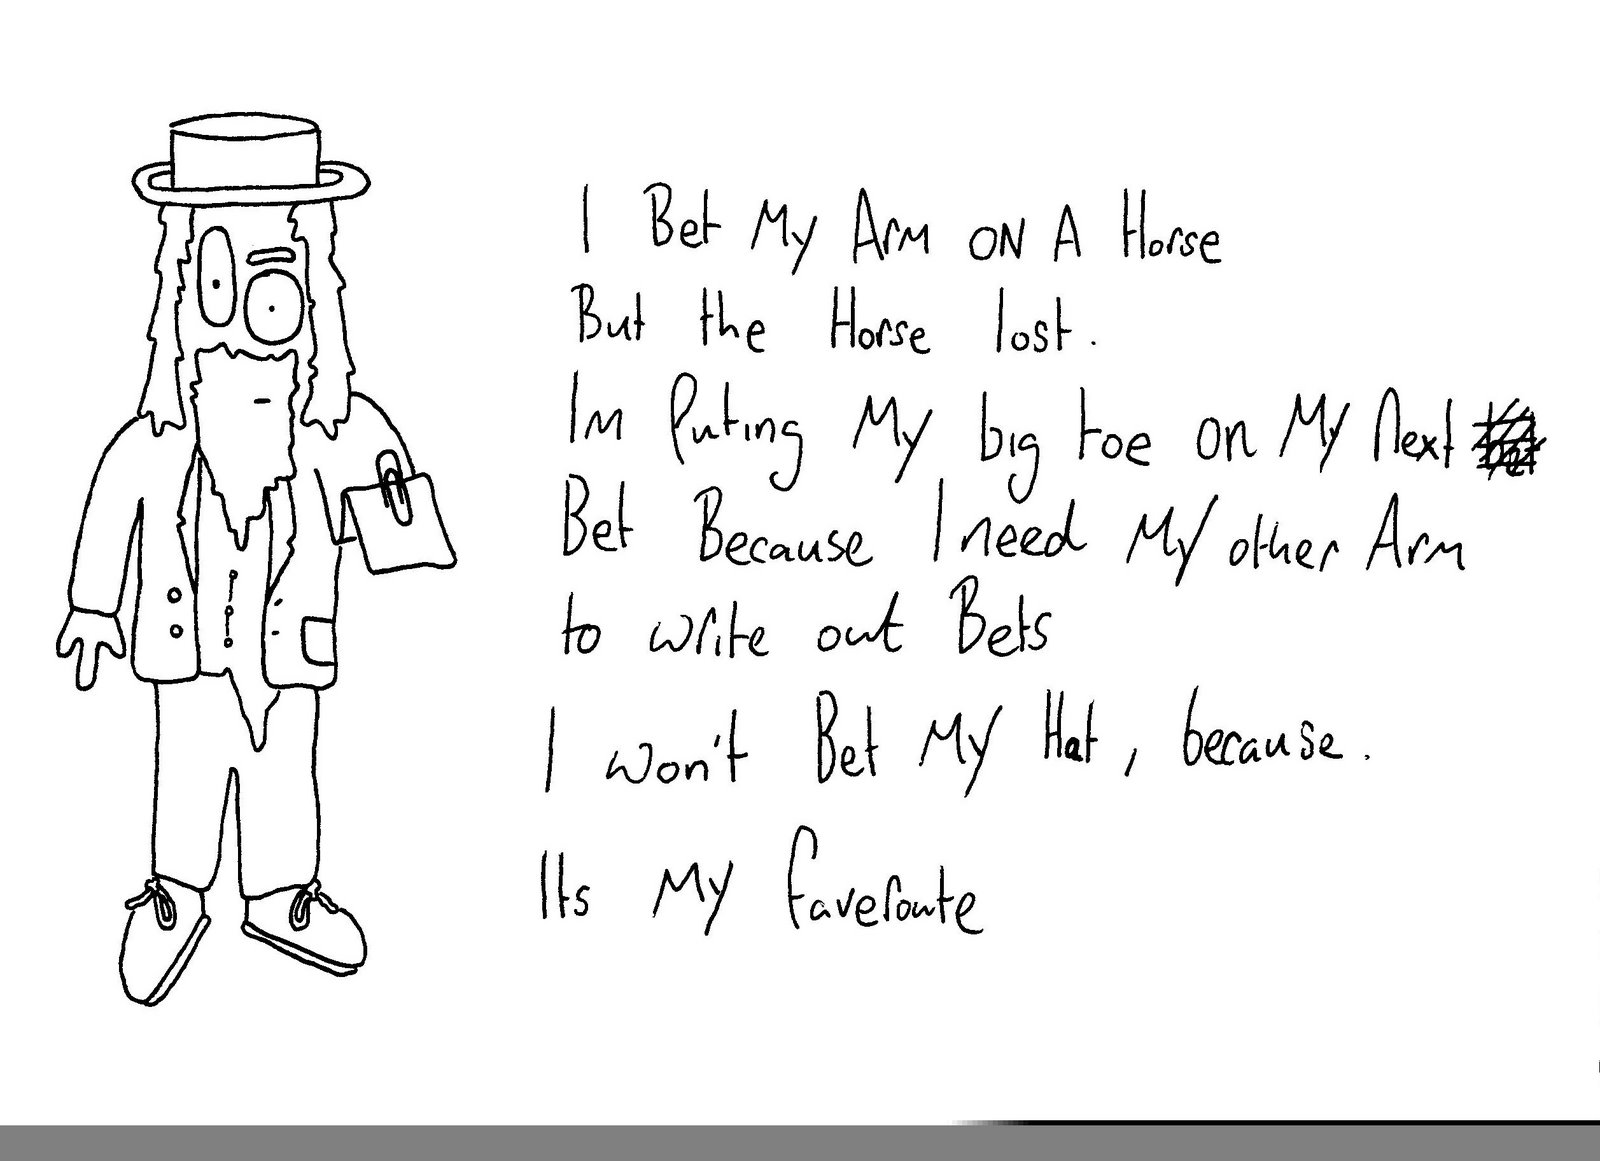 I Bet My Arm ON A Horse
But the Horse lost.
Im Puting My big toe on My Next
Bet Because I need My other Arm
to write out Bets
I won't Bet My Hat, because.
Its My faveroute